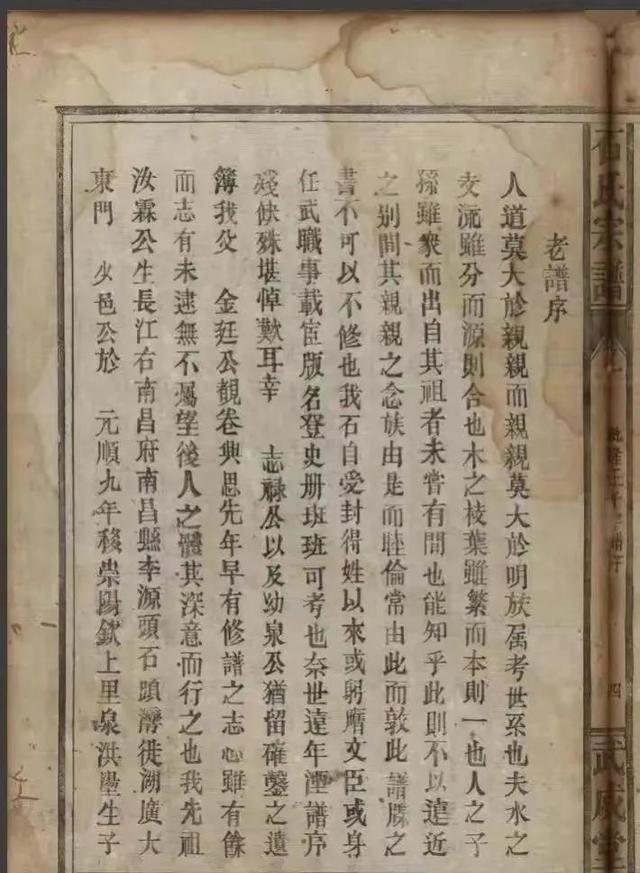 老譜序
人道莫大於親親而親親莫大於明族属考世系也夫水之
支流雖分而源則合也木之枝葉雖繁而本則一也人之子
孫雖衆而出自其祖者未嘗有間也能知乎此則不以遠近
之别間其親親之念族由是而睦倫常由此而敦此譜牒之
書不可以不修也我石自受封得姓以來或躬膺文臣或身
任武職事載宦版名登史册班班可考也奈世遠年湮譜序
殘缺殊堪悼歎耳幸 志禄公以及幼泉公猶留確鑿之遺
簿我父 金廷公觀卷興思先年早有修譜之志心雖有餘
而志有未逮無不屬望後人之體其深意而行之也我先祖
汝霖公生長江右南昌府南昌縣李源頭石頭灣徙湖廣大
東門 少邑公於 元順九年移崇陽欽上里泉洪壆生子
石氏宗譜
四
武威堂